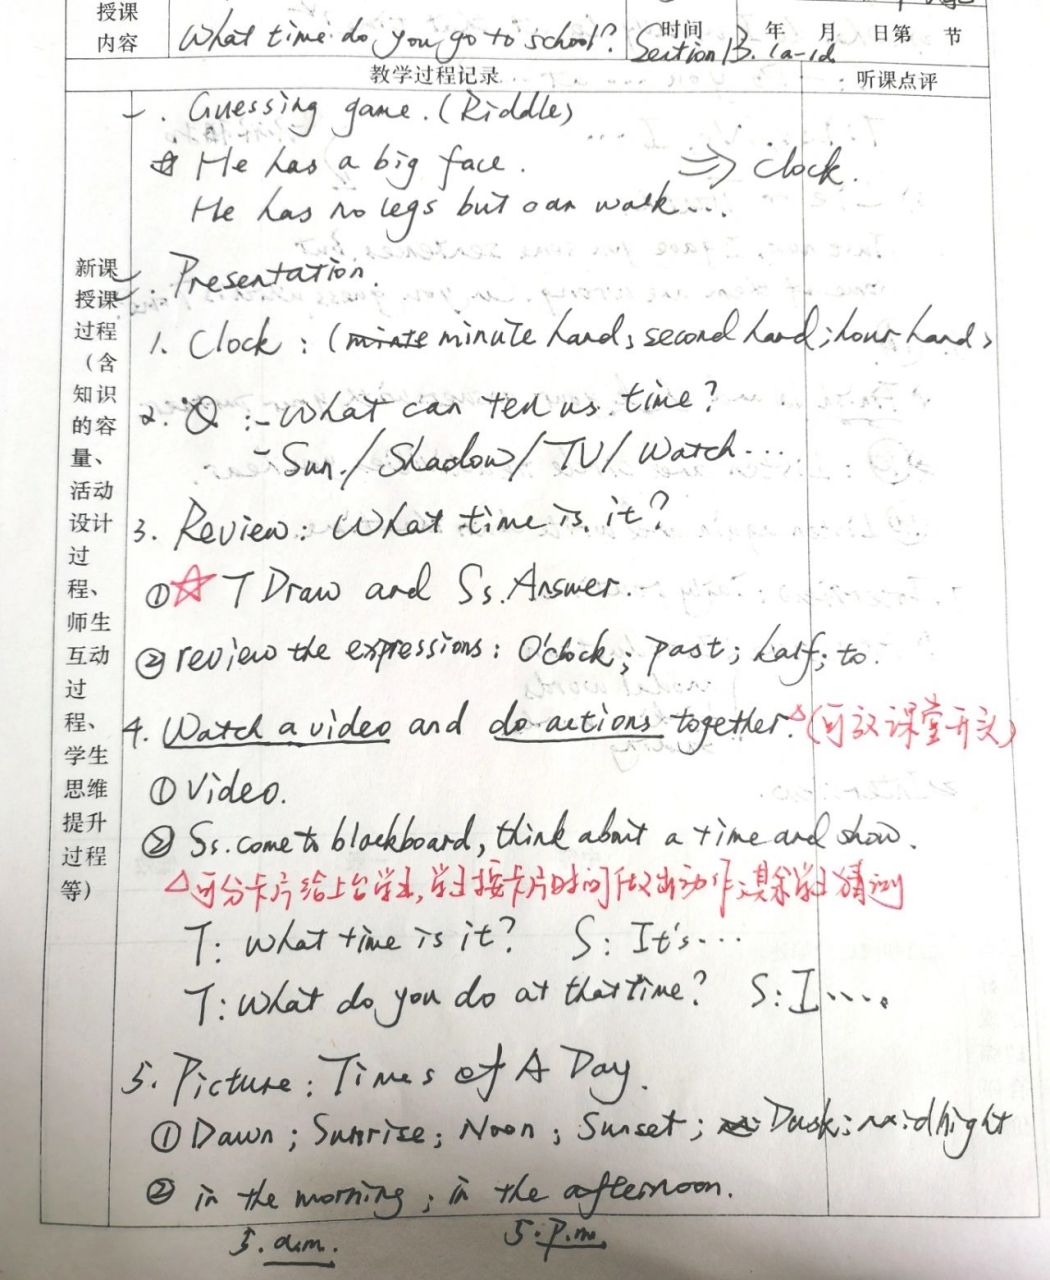 授课
内容
What time do you go to school?
时间 年 月 日第 节
Section B. 1a-1d
教学过程记录 听课点评
一. Guessing game. (Riddle)
He has a big face. ⇒ clock.
He has no legs but can walk...
新课
授课
过程
(含
知识
的容
量、
活动
设计
过
程、
师生
互动
过
程、
学生
思维
提升
过程
等)
二. Presentation.
1. Clock : (minute hand; second hand; hour hand)
2. Q : - What can tell us time?
- Sun / Shadow / TV / Watch...
3. Review: What time is it?
①☆ T Draw and Ss. Answer.
② review the expressions: O'clock; past; half; to.
4. Watch a video and do actions together.△(可放课堂开头)
① Video.
② Ss. come to blackboard, think about a time and show.
△可分卡片给上台学生,学生按卡片时间做出动作,其余学生猜测
T: What time is it? S: It's...
T: What do you do at that time? S: I....
5. Picture: Times of A Day.
① Dawn; Sunrise; Noon; Sunset; Dusk; midnight
② in the morning; in the afternoon.
5. a.m. 5. p.m.